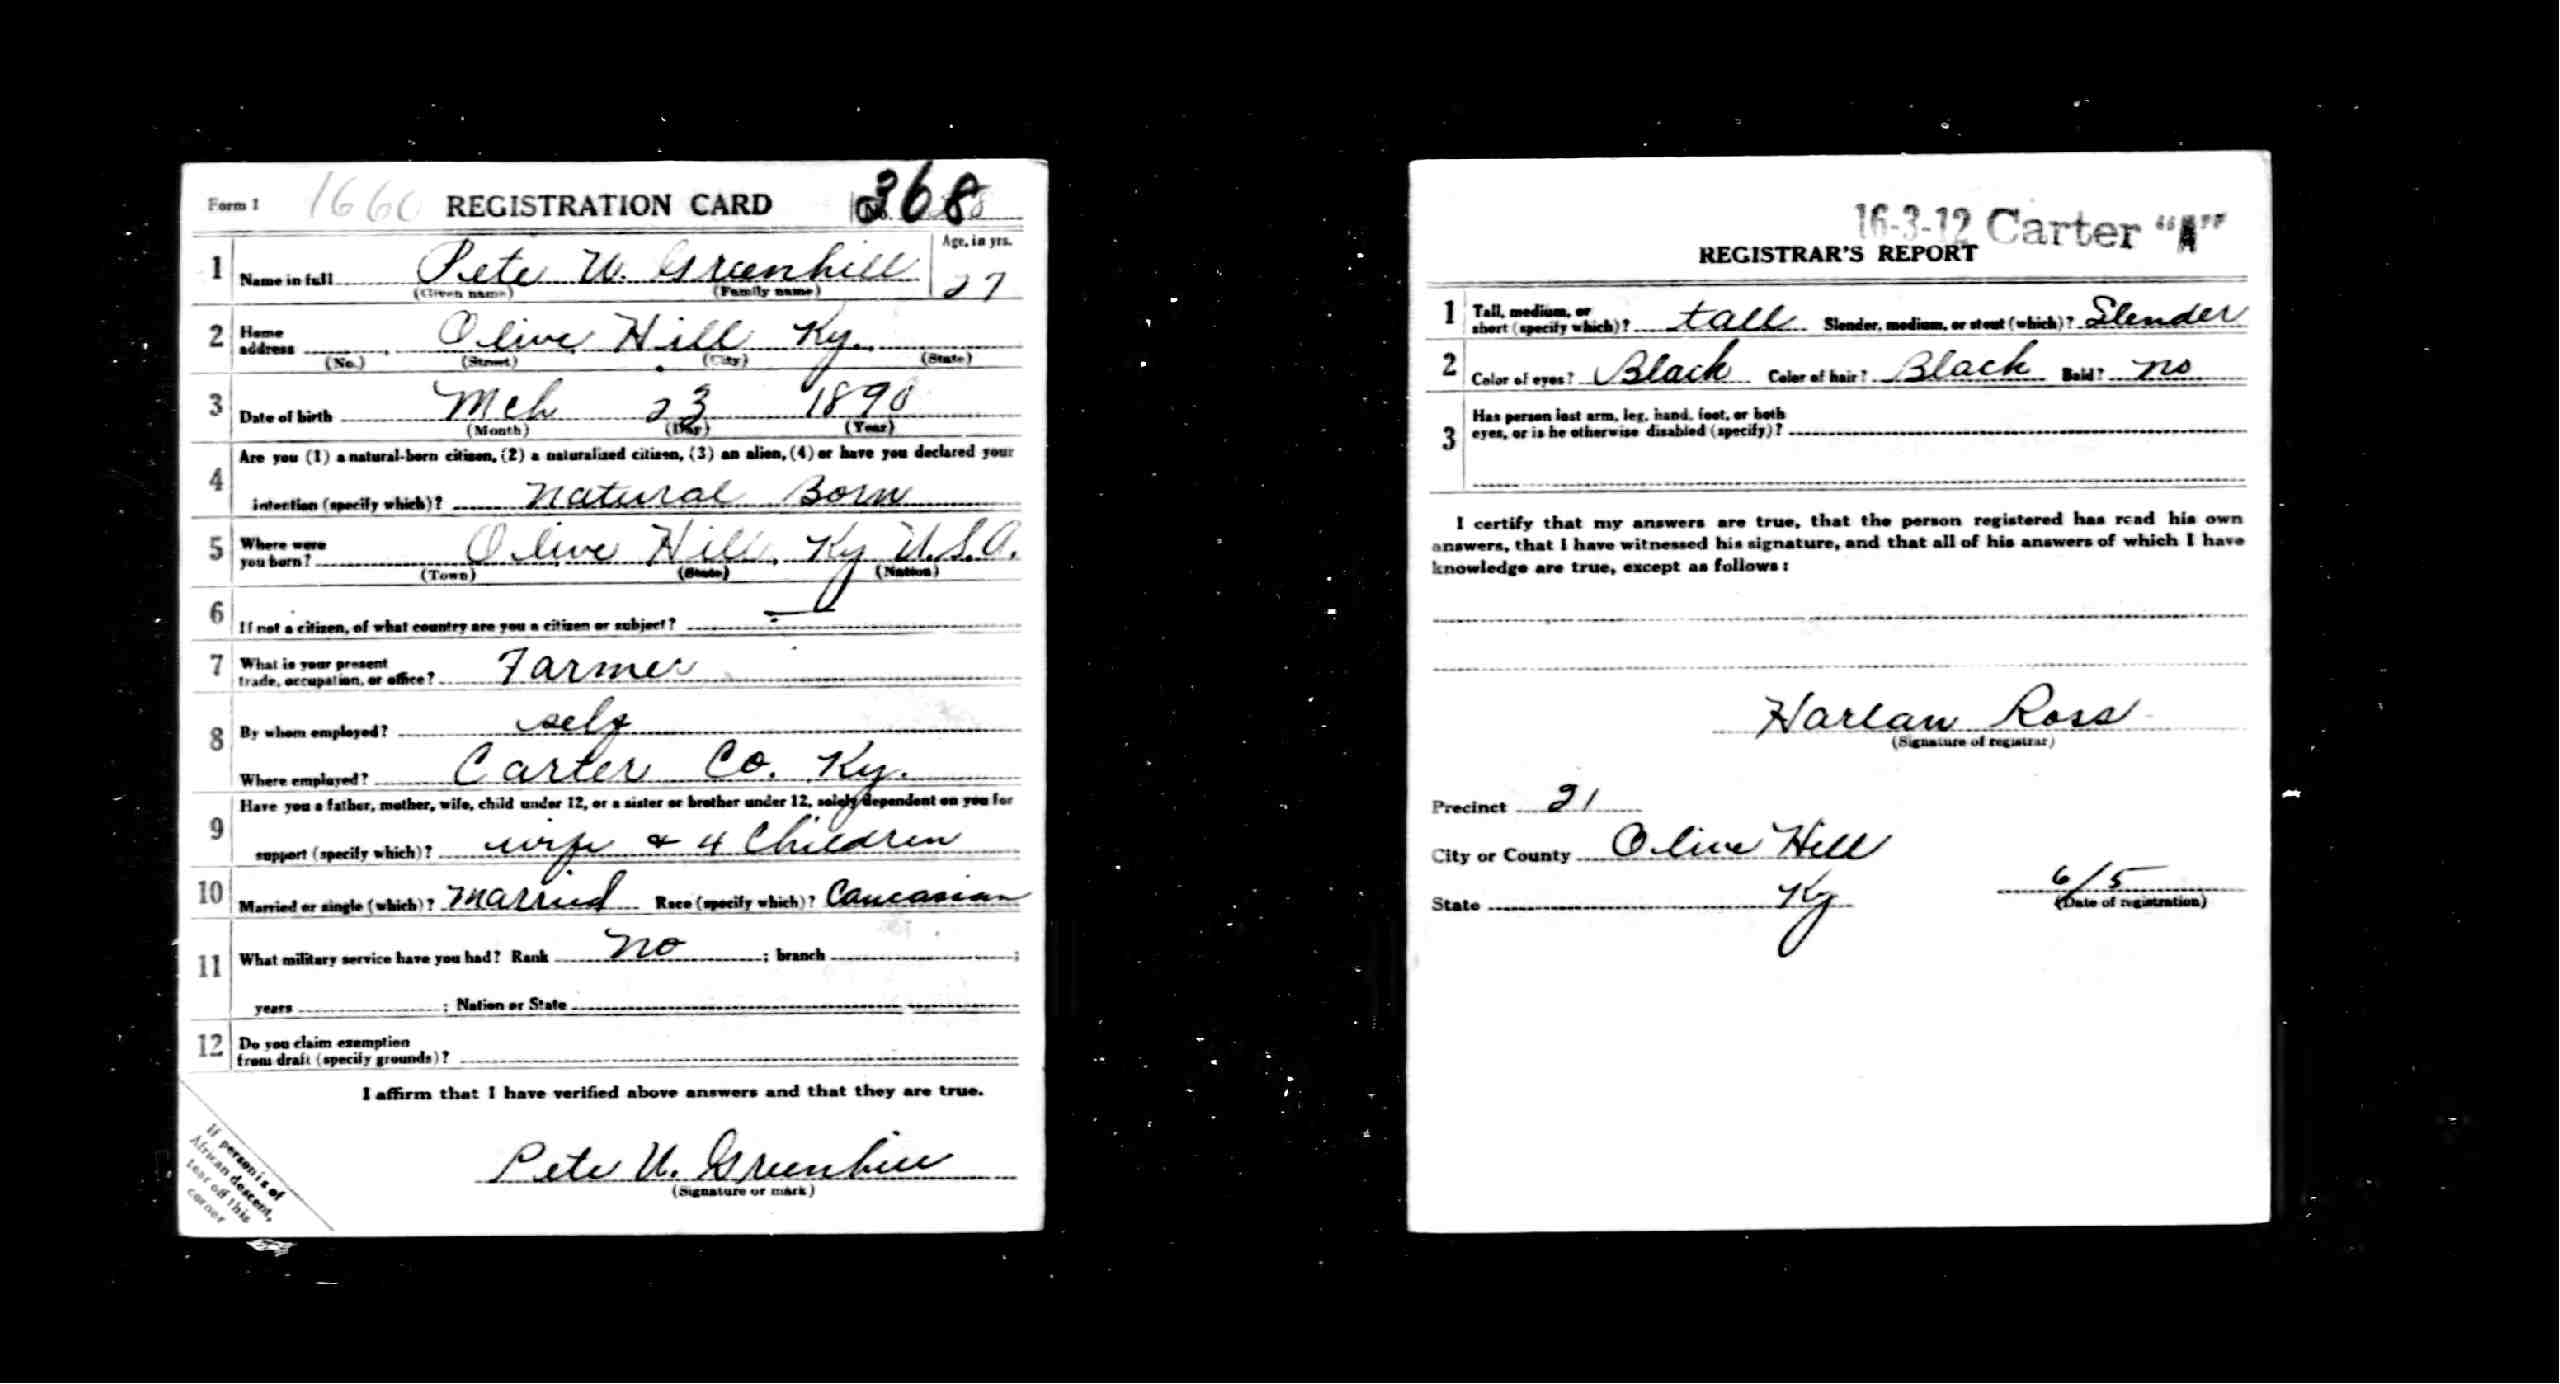 Form 1 1660 REGISTRATION CARD No. 368
1 Name in full Pete U. Greenhill Age, in yrs. 27
(Given name) (Family name)
2 Home address Olive Hill Ky.
(No.) (Street) (City) (State)
3 Date of birth Mch 23 1890
(Month) (Day) (Year)
4 Are you (1) a natural-born citizen, (2) a naturalized citizen, (3) an alien, (4) or have you declared your
intention (specify which)? Natural Born
5 Where were you born? Olive Hill, Ky U.S.A.
(Town) (State) (Nation)
6 If not a citizen, of what country are you a citizen or subject? —
7 What is your present trade, occupation, or office? Farmer
8 By whom employed? self
Where employed? Carter Co. Ky.
9 Have you a father, mother, wife, child under 12, or a sister or brother under 12, solely dependent on you for
support (specify which)? wife & 4 Children
10 Married or single (which)? Married Race (specify which)? Caucasian
11 What military service have you had? Rank no ; branch ;
years ; Nation or State
12 Do you claim exemption
from draft (specify grounds)?
I affirm that I have verified above answers and that they are true.
Pete U. Greenhill
(Signature or mark)
If person is of
African descent,
tear off this
corner
16-3-12 Carter "A"
REGISTRAR'S REPORT
1 Tall, medium, or short (specify which)? tall Slender, medium, or stout (which)? Slender
2 Color of eyes? Black Color of hair? Black Bald? no
3 Has person lost arm, leg, hand, foot, or both
eyes, or is he otherwise disabled (specify)?
I certify that my answers are true, that the person registered has read his own
answers, that I have witnessed his signature, and that all of his answers of which I have
knowledge are true, except as follows:
Harlan Ross
(Signature of registrar)
Precinct 21
City or County Olive Hill
State Ky 6/5
(Date of registration)